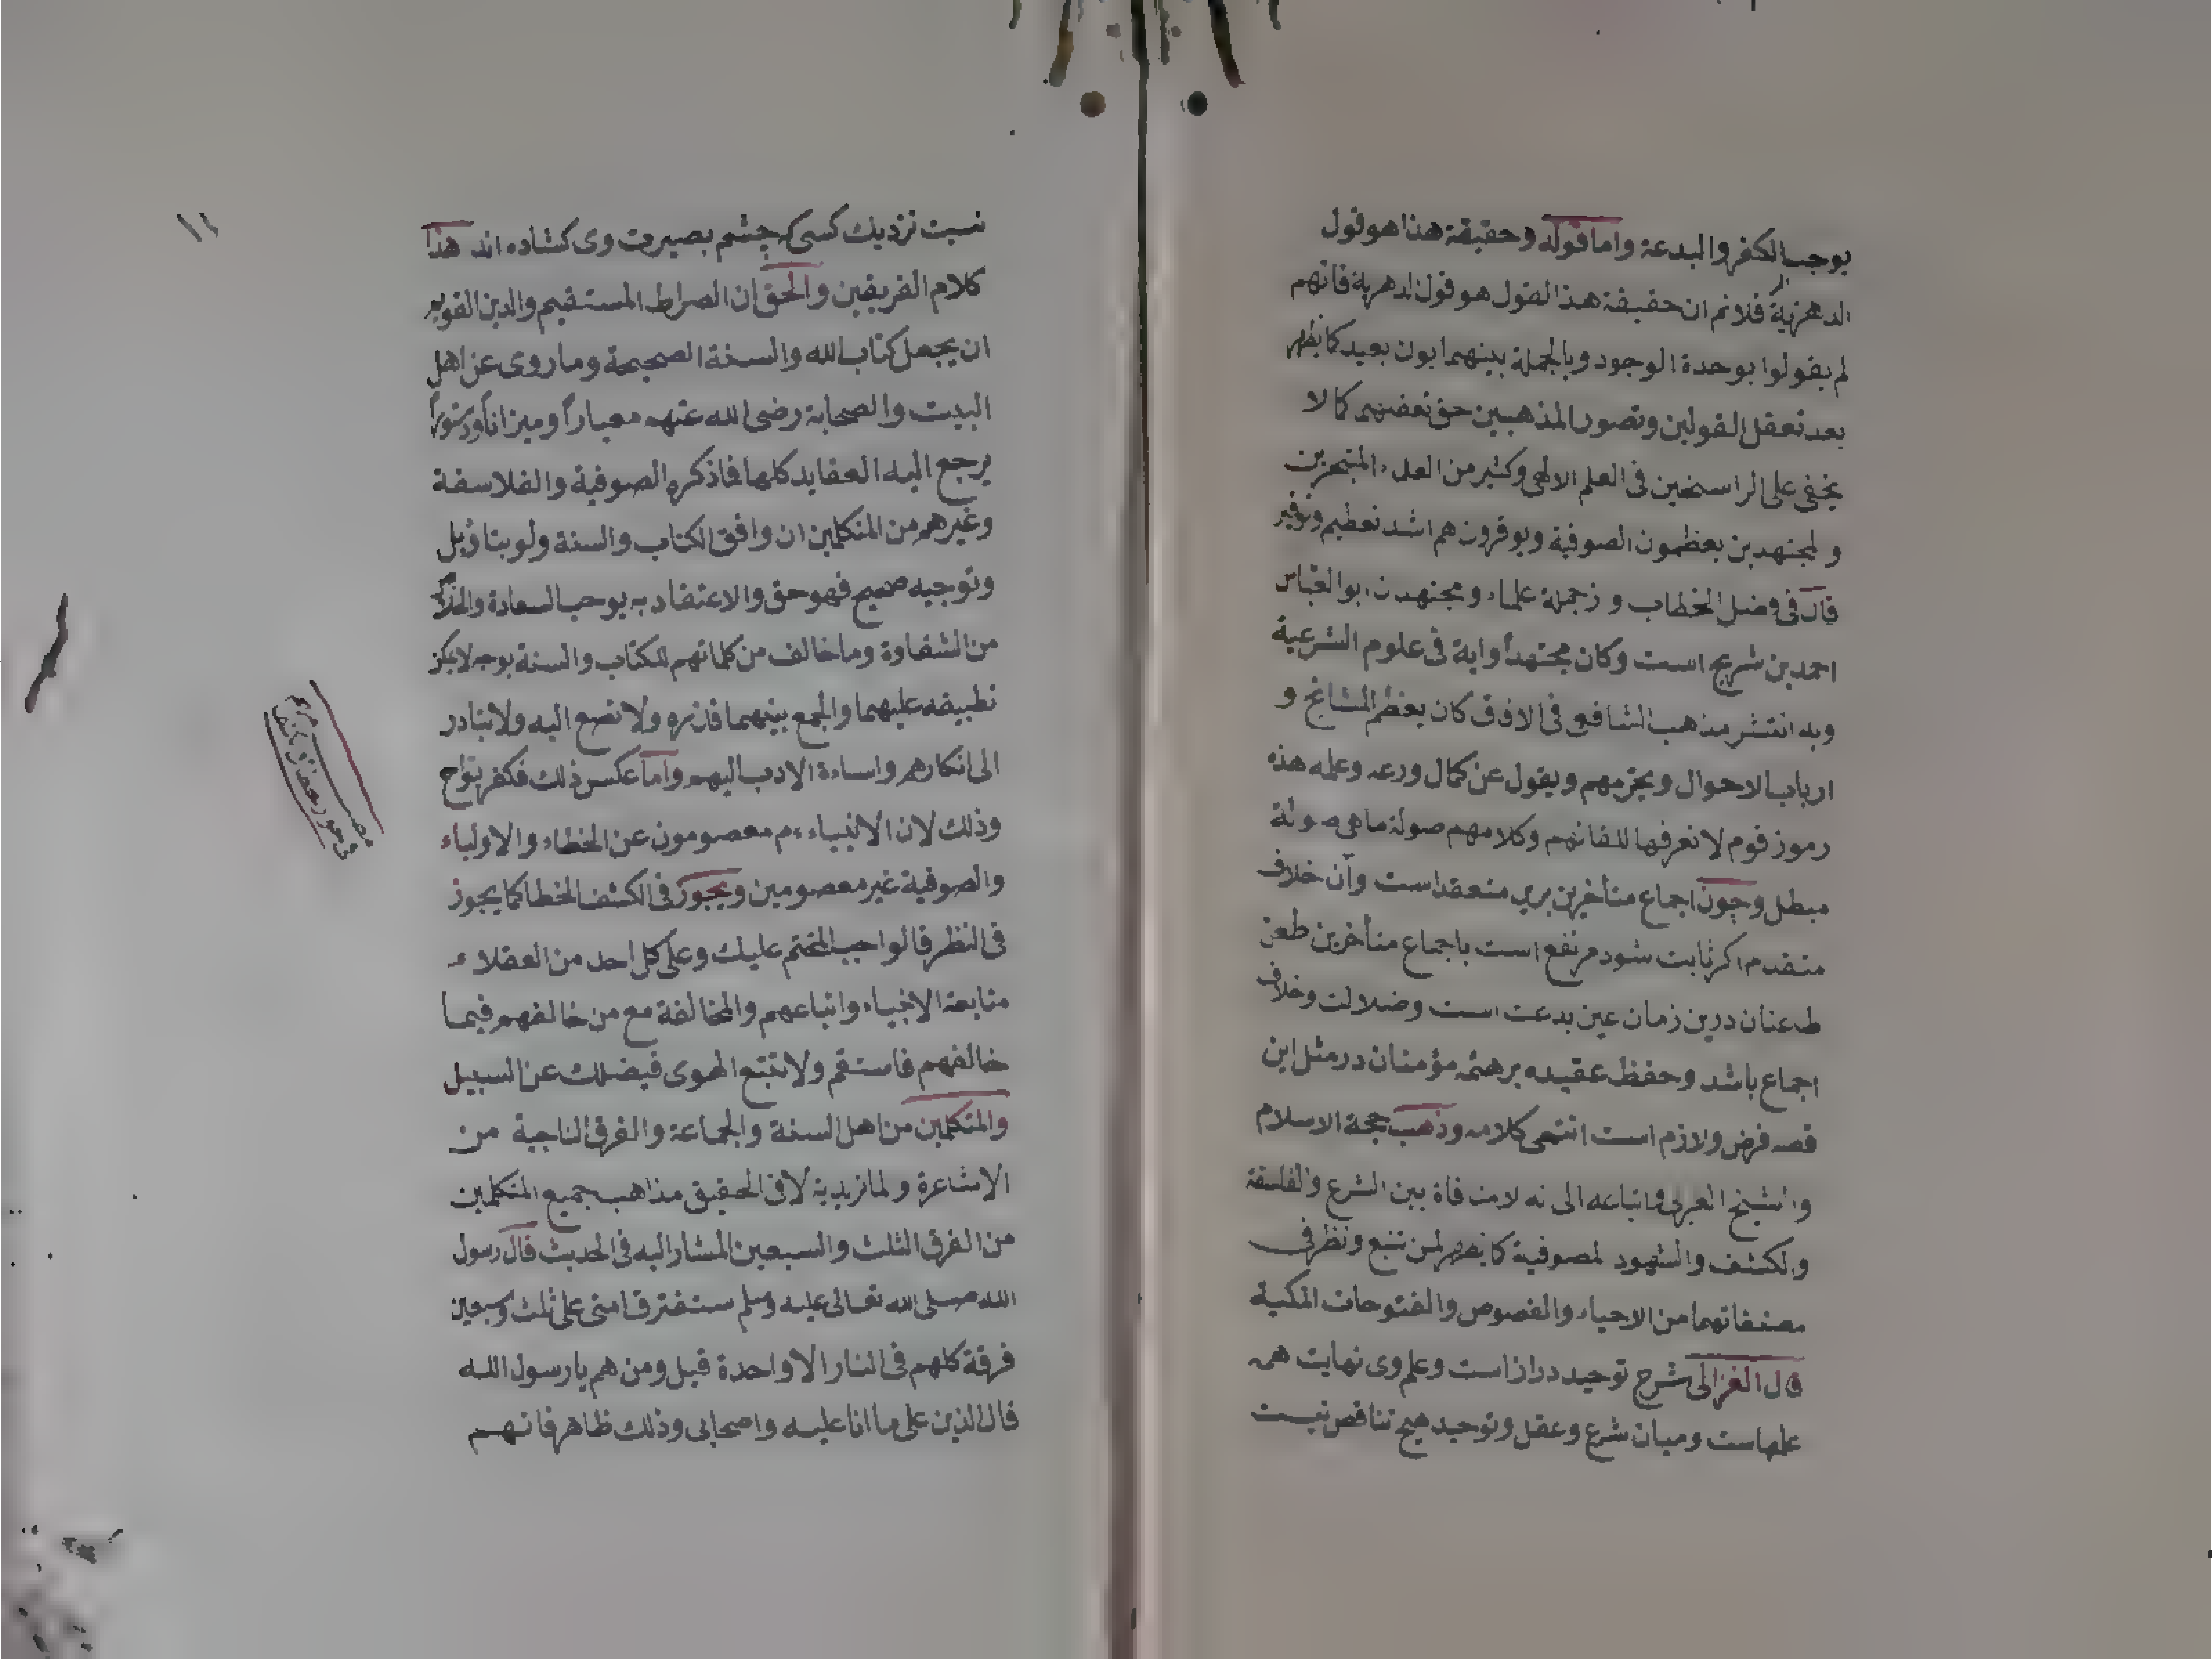 يوجب الكفر والبدعة واما قوله وحقيقة هذا هو قول
الدهرية فلانم ان حقيقة هذا القول هو قول الدهرية فانهم
لم يقولوا بوحدة الوجود وبالجملة بينهما بون بعيد كما يظهر
بعد تعقل القولين وتصور المذهبين حق تعقلهم كما لا
يخفى على الراسخين فى العلم الالهى وكثير من العلماء المتبحرين
والمجتهدين يعظمون الصوفية ويوقرون هم اشد تعظيم وتوقير
قال فى فصل الخطاب واز جملة علماء ومجتهدان ابو العباس
احمد بن شريح است وكان مجتهداً واية فى علوم الشرعية
وبه انتشر مذهب الشافعى فى الافاق كان يعظم المشايخ و
ارباب الاحوال ويحترمهم ويقول عن كمال ورعه وعلمه هذه
رموز قوم لا نعرفها للقائهم وكلامهم صولة ما هى صولة
مبطل وچون اجماع متأخرين برين منعقد است وآن خلاف
متقدم اكر ثابت شود مرتفع است باجماع متأخرين طعن
طاعنان درين زمان عين بدعت است وضلالت وخلاف
اجماع باشد وحفظ عقيده بر همۀ مؤمنان در مثل اين
قصه فرض ولازم است انتهى كلامه وذهب حجة الاسلام
والشيخ العربى واتباعه الى انه لا منافاة بين الشرع والفلسفة
والكشف والشهود لصوفية كما يظهر لمن تتبع ونظر فى
مصنفاتهما من الاحياء والفصوص والفتوحات المكية
قال الغزالى شرح توحيد دراز است وعلم وى نهايت همه
علمهاست وميان شرع وعقل وتوحيد هيچ تناقض نيست
١١
نسبت نزديك كسى كه چشم بصيرت وى كشاده اند هذا
كلام الفريقين والحق ان الصراط المستقيم والدين القويم
ان يجعل كتاب الله والسنة الصحيحة وما روى عن اهل
البيت والصحابة رضى الله عنهم معياراً وميزاناً ودستوراً
يرجع اليه العقايد كلها فاذكره الصوفية والفلاسفة
وغيرهم من المتكلمين ان وافق الكتاب والسنة ولو بتأويل
وتوجيه صحيح فهو حق والاعتقاد به يوجب السعادة
من الشقاوة وما خالف من كلماتهم للكتاب والسنة بوجه لا يمكن
تطبيقه عليهما والجمع بينهما فذره ولا تصغ اليه ولا تبادر
الى انكارهم واساءة الادب اليهم واما عكس ذلك فكفر بواح
وذلك لان الانبياء ءم معصومون عن الخطاء والاولياء
والصوفية غير معصومين ويجوز فى الكشف الخطا كما يجوز
فى النظر فالواجب المحتم عليك وعلى كل احد من العقلاء
متابعة الانبياء واتباعهم والمخالفة مع من خالفهم فيما
خالفهم فاستقم ولا تتبع الهوى فيضلك عن السبيل
والمتكلمين من اهل السنة والجماعة والفرق الناجية من
الاشاعرة والماتريدية لا فى الحقيق مذاهب جميع المتكلمين
من الفرق الثلث والسبعين المشار اليه فى الحديث قال رسول
الله صلى الله تعالى عليه وسلم ستفترق امتى على ثلث وسبعين
فرقة كلهم فى النار الا واحدة قيل ومن هم يا رسول الله
قال الذين على ما انا عليه واصحابى وذلك ظاهر فانهم